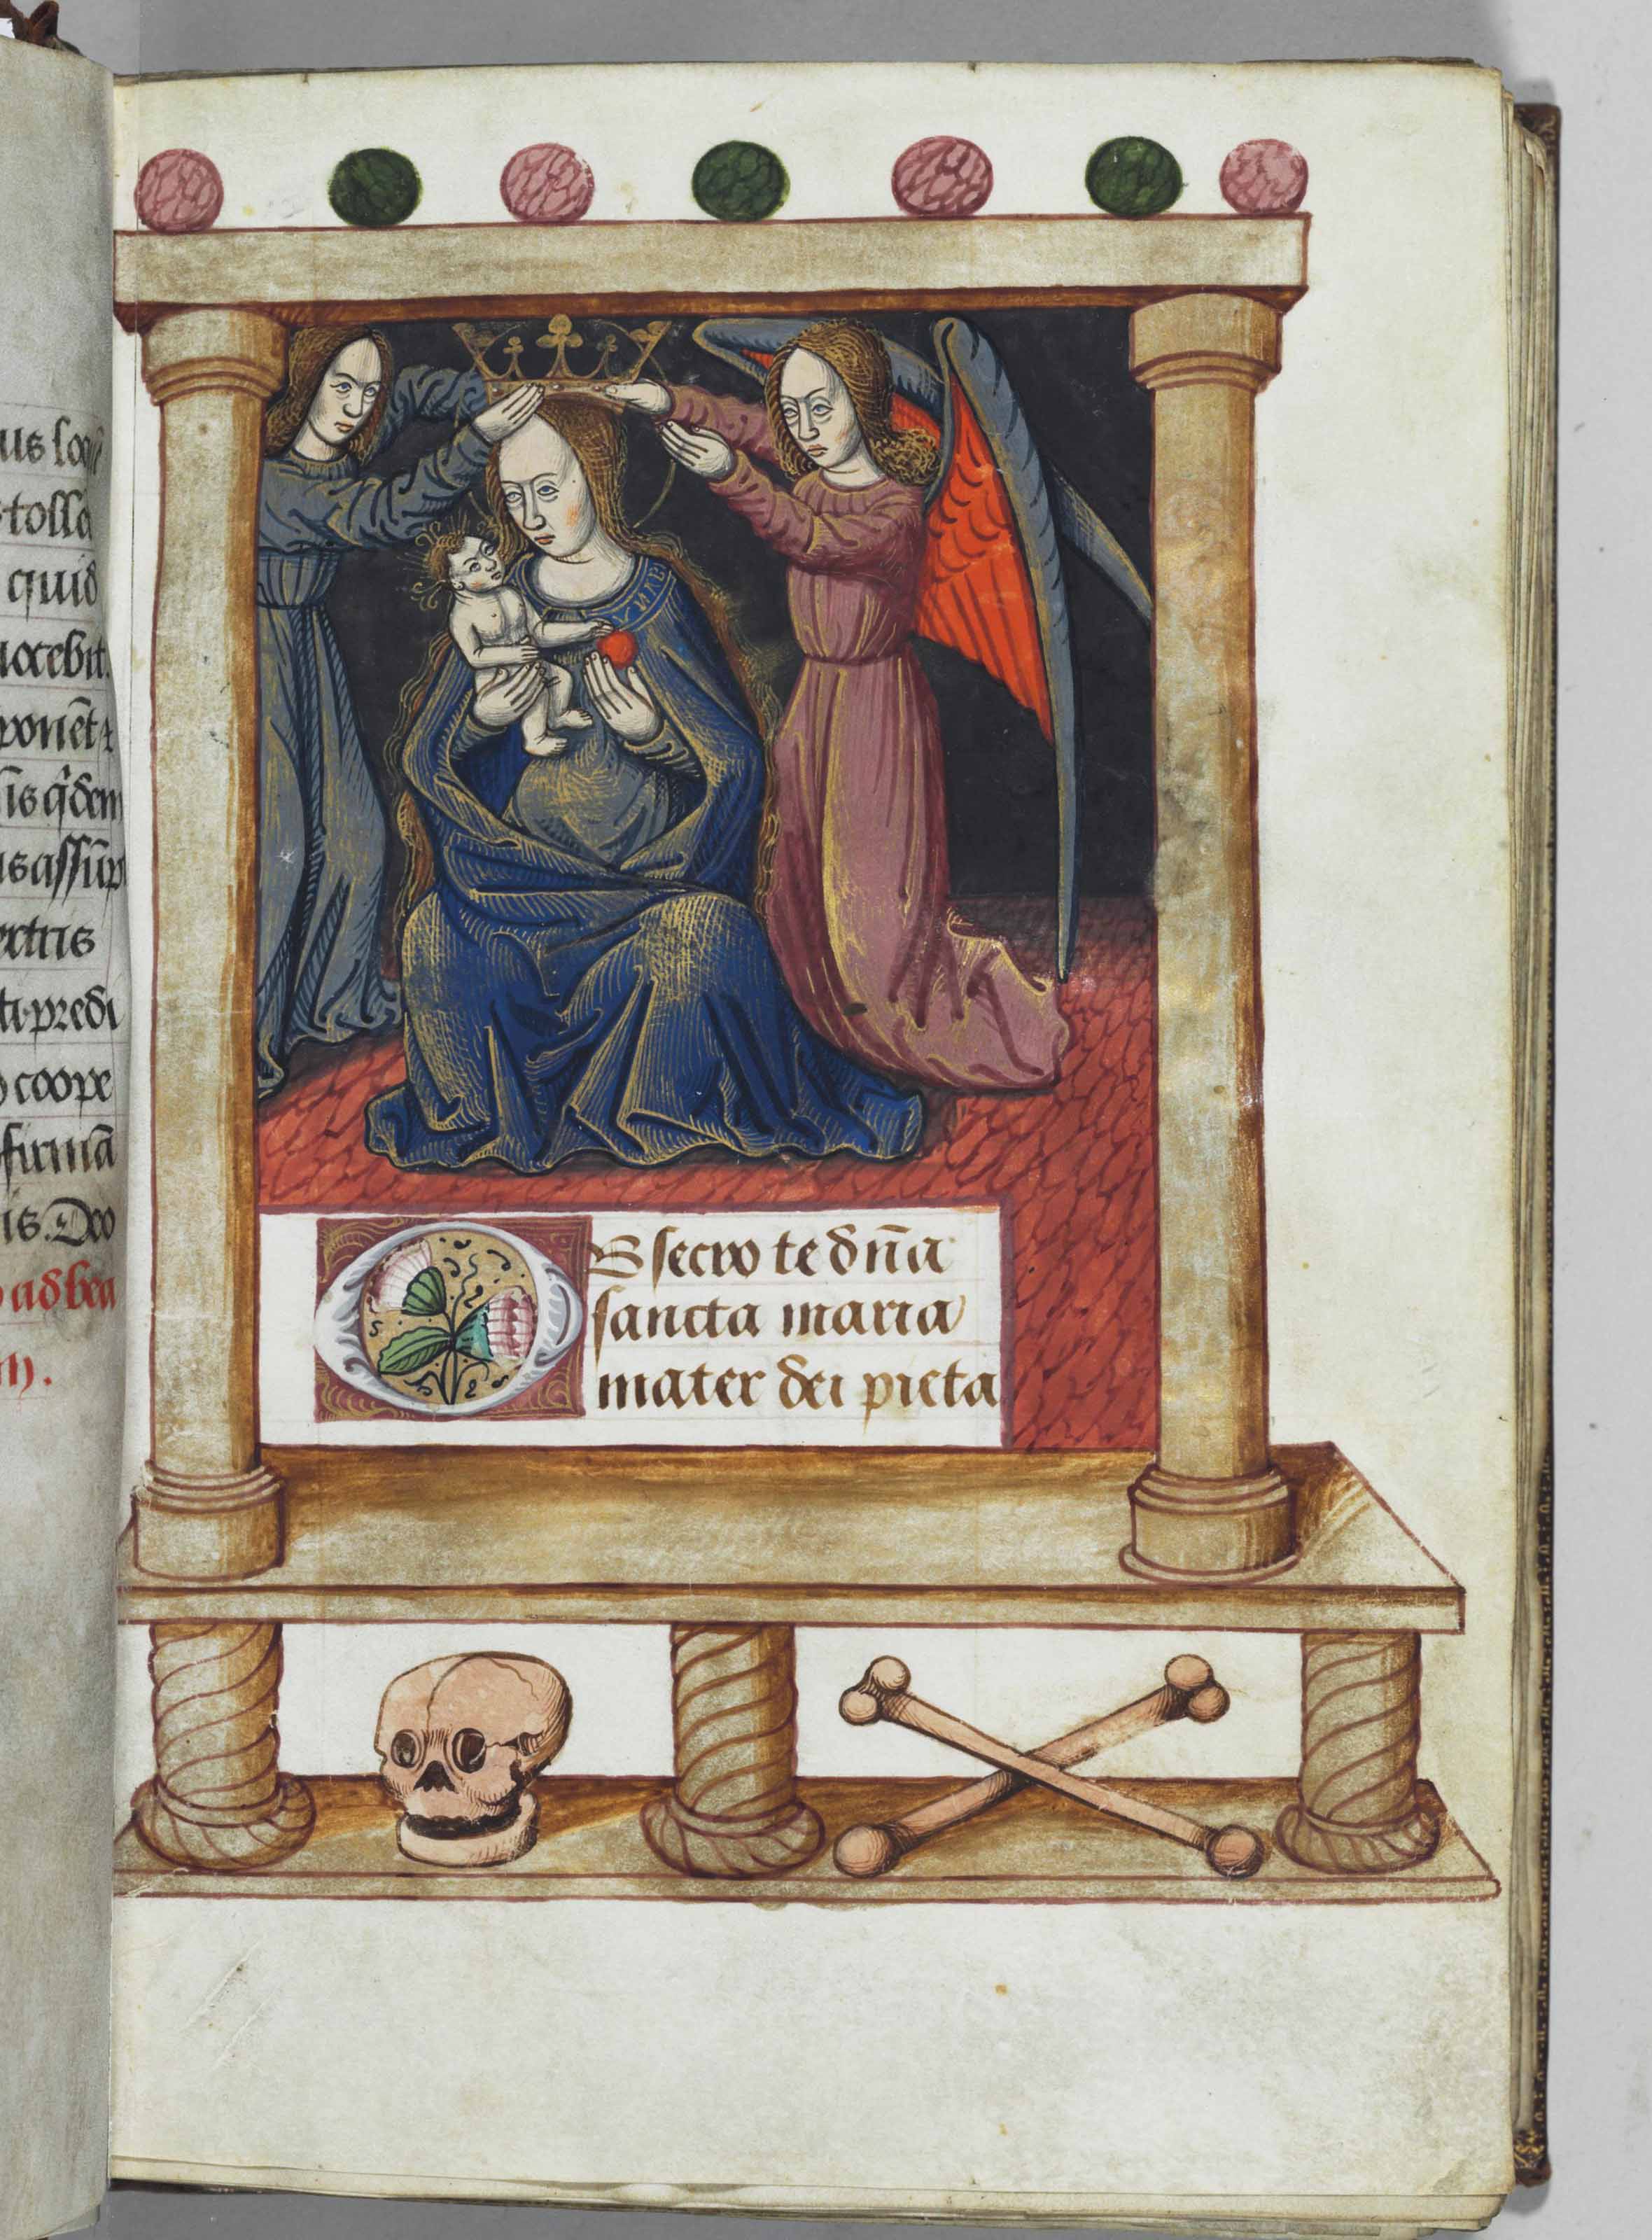 us loq̄
tolla
quid
nocebit.
ponēt⁊
is q̇dem
us assūp
extris
ti predi
coope
firmā
is. Deo
ad bea
Obsecro te dn̄a
sancta maria
mater dei pieta